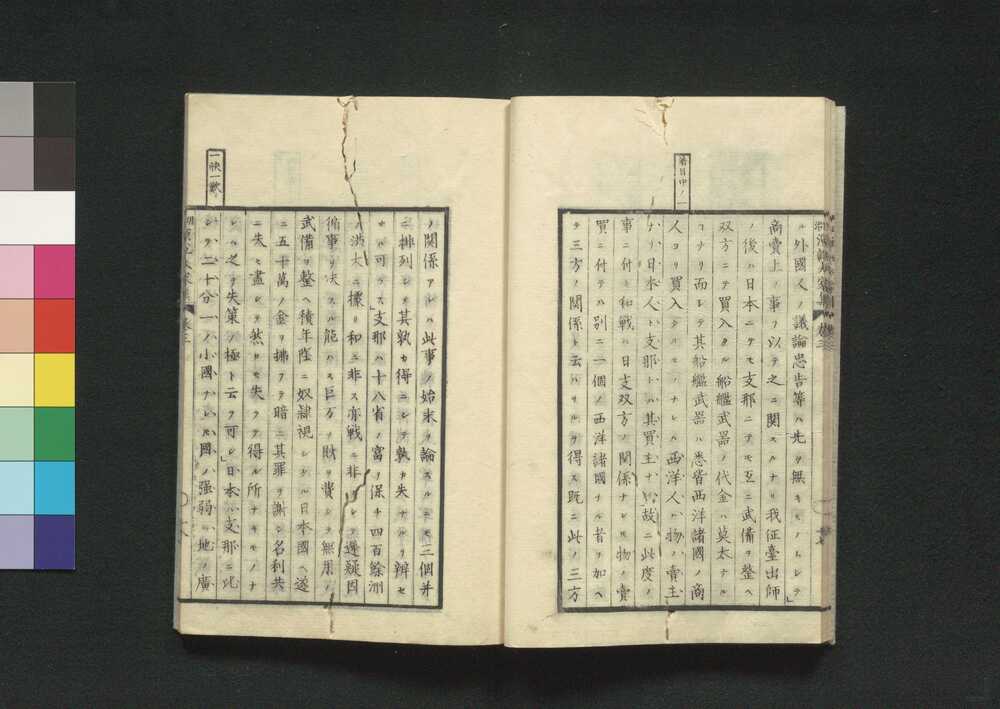 着目中ノ一
ル外國人ノ議論忠告等ハ先ツ無キモノトシテ」
商賣上ノ事ヲ以テ之ニ関スルナリ我征臺出師
ノ後ハ日本ニテモ支那ニテモ互ニ武備ヲ整ヘ
双方ニテ買入タル船艦武器ノ代金ハ莫大ナル
コナリ而シテ其船艦武器ハ悉皆西洋諸國ノ商
人ヨリ買入タルモノナレハ西洋人ハ物ノ賣主
ナリ日本人ト支那トハ其買主ナリ故ニ此度ノ
事ニ付キ和戦ハ日支双方ノ関係ナレ𪜈物ノ賣
買ニ付テハ別ニ一個ノ西洋諸國ナル者ヲ加ヘ
テ三方ノ関係ト云ハサルヲ得ス既ニ此ノ三方
ノ関係アレハ此事ノ始末ヲ論スルニモ三個并
ニ排列シテ其孰カ得ニシテ孰カ失ナルヲ辨セ
サル可ラス」支那ハ十八省ノ富ヲ保チ四百餘洲
ノ洪大ニ據リ和ニ非ス亦戦ニ非ラシテ遷疑因
循事ヲ决スル能ハス巨万ノ財ヲ費シテ無用ノ
武備ヲ整ヘ積年陰ニ奴隷視シタル日本國ヘ遂
ニ五十萬ノ金ヲ拂フテ暗ニ其罪ヲ謝シ名利共
ニ失ヒ盡シテ然カモ失フテ得ル所ナキモノナ
レハ之ヲ失策ノ極ト云フ可シ」日本ハ支那ニ比
シテ二十分一ノ小國ナレ𪜈國ノ強弱ハ地ノ廣
一快一歎
卷三